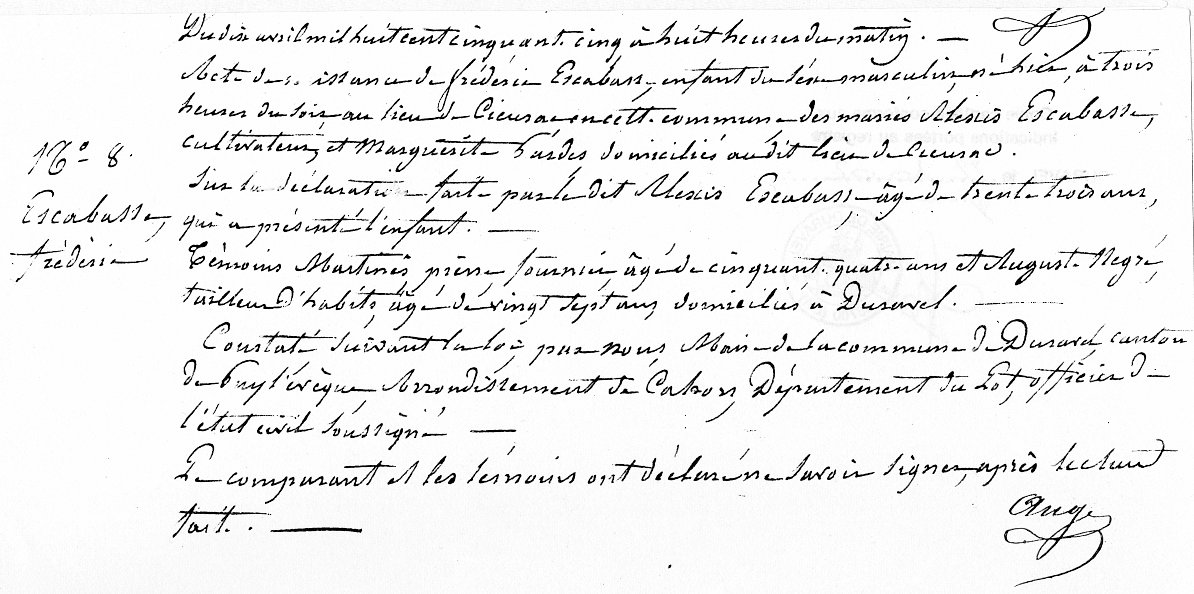 Du dix avril mil huit cent cinquante cinq à huit heures du matin. —
Acte de naissance de frédéric Escabasse, enfant du séxe masculin, né hier, à trois
heures du soir, au lieu de Cieurac en cette commune des mariés Alexis Escabasse,
N° 8.
cultivateur, et Marguérite Bardes domiciliés audit lieu de Cieurac.
Sur la déclaration faite par le dit Alexis Escabasse, âgé de trente trois ans,
Escabasse,
qui a présenté l'enfant. —
frédéric
Témoins Martinès pierre fournier, âgé de cinquante quatre ans et Auguste Negré,
tailleur d'habits, âgé de vingt sept ans, domiciliés à Duravel. —
Constaté suivant la loi, par nous Maire de la commune de Duravel, canton
de Puy l'évèque Arrondissement de Cahors, Département du Lot, officier de
l'état civil soussigné —
Le comparant et les témoins ont déclaré ne savoir signer, après lecture
fait. —
Ange